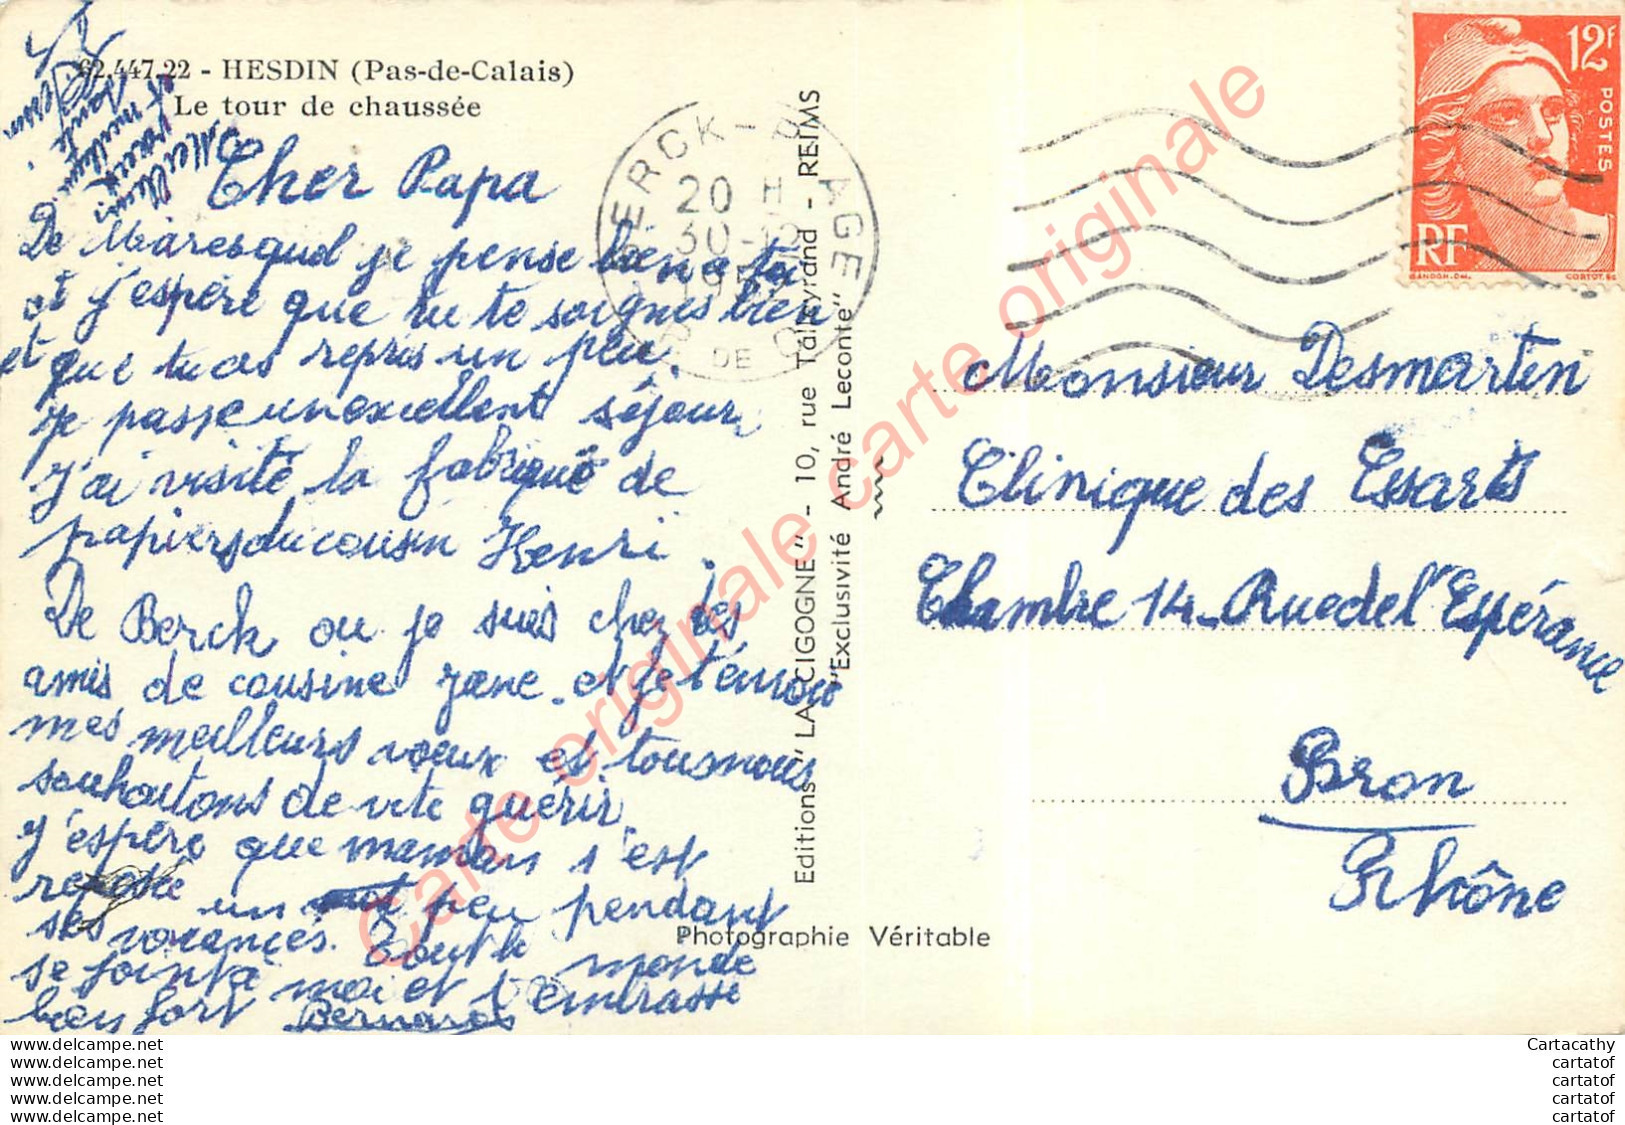 62.447.22 - HESDIN (Pas-de-Calais)
Le tour de chaussée
Meilleurs
voeux
et meilleure
santé
Cher Papa
De Maresquel je pense bien à toi
et j'espère que tu te soignes bien
et que tu as repris un peu.
Je passe un excellent séjour,
J'ai visité la fabrique de
papiers du cousin Henri.
De Berck ou je suis chez des
amis de cousine Jane. et je t'envoie
mes meilleurs voeux et tous nous
souhaitons de vite guérir,
J'espère que maman s'est
reposée un peu pendant
ses vacances. Tout le monde
se joint à moi et t'embrasse
bien fort Bernard
BERCK - PLAGE
20 H
30-12
195
P. DE C.
Editions "LA CIGOGNE" - 10, rue Talleyrand - REIMS
"Exclusivité André Leconte"
Photographie Véritable
12F
POSTES
RF
GANDON-DEL.
CORTOT.SC
Monsieur Desmartin
Clinique des Essarts
Chambre 14 - Rue de l'Espérance
Bron
Rhône
Carte originale carte originale Carte originale
www.delcampe.net
www.delcampe.net
www.delcampe.net
www.delcampe.net
www.delcampe.net
Cartacathy
cartatof
cartatof
cartatof
cartatof